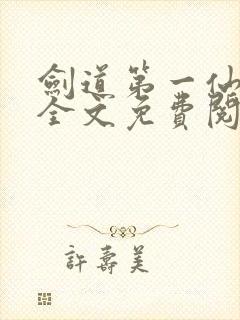 劍道第一仙
全文免費閱
許壽美